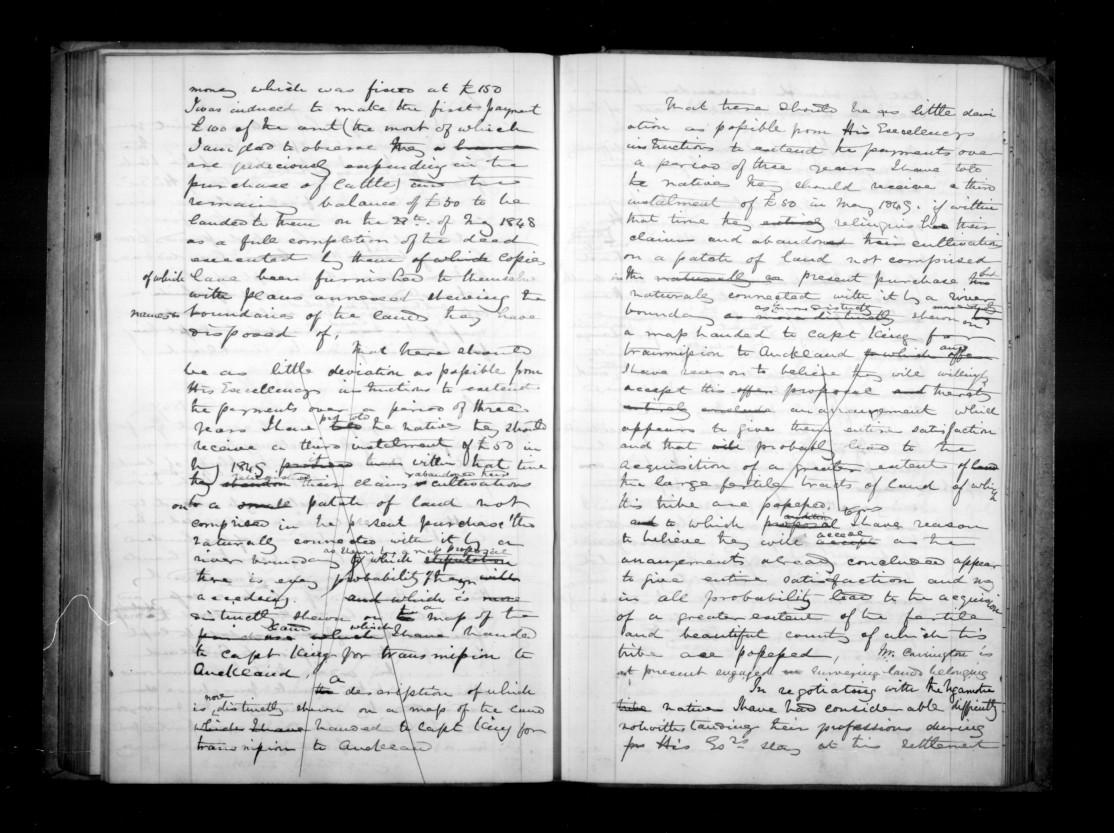 money which was fixed at £150
I was induced to make the first payment
£100 of the amt (the most of which
I am glad to observe they a
are judiciously expending in the
purchase of Cattle) and the
remaining balance of £50 to be
handed to them on the of May 1848
as a full completion of the deed
executed by them of which Copies
of which have been furnished to themselves
with plans annexed shewing the
names & boundaries of the land they have
disposed of,
That there should
be as little deviation as possible from
His Excellencys instructions to extend
the payments over a period of three
years I have told the natives they should
receive a third instalment of £50 in
May 1849 within that time
they abandon their claims & cultivations
on a small patate of land not
comprised in the present purchase tho
naturally connected with it by a
river boundary as shewn by a map proposal to which stipulation
there is every probability they will
acceding. and which is more
distinctly shewn on the a map of the
land which I have handed
to Capt King for transmission to
Auckland,
the a description of which
is now distinctly shewn on a map of the land
which I have handed to Capt King for
transmission to Auckland
That there should be as little devi
ation as possible from His Excellencys
instructions to extend the payments over
a period of three years I have told
the natives they should receive a third
instalment of £50 in May 1849. if within
that time they entirely relinquished their
claims and abandoned their cultivation
on a patate of land not comprised
in the naturally as present purchase this but
naturally connected with it by a River
boundary as more distinctly shewn on
a map handed to Capt King for
transmission to Auckland to which offer and
I have reason to believe they will willingly
accept this offer proposal and thereby
entirely conclude an arrangement which
appears to give them entire satisfaction
and that will probably lead to the
acquisition of a greater extent of land
the large fertile tracts of land of which
this tribe are possessed.
and to which proposal I have reason
to believe they will accept accede as the
arrangements already concluded appear
to give entire satisfaction and may
in all probability lead to the acquisition
of a greater extent of the fertile
and beautiful country of which this
tribe are possessed, Mr. Carrington is
at present engaged in surveying lands belonging
In negotiating with the Ngamotu
tribe natives I have had considerable difficulty
notwithstanding their professions during
His Ex stay at this settlement